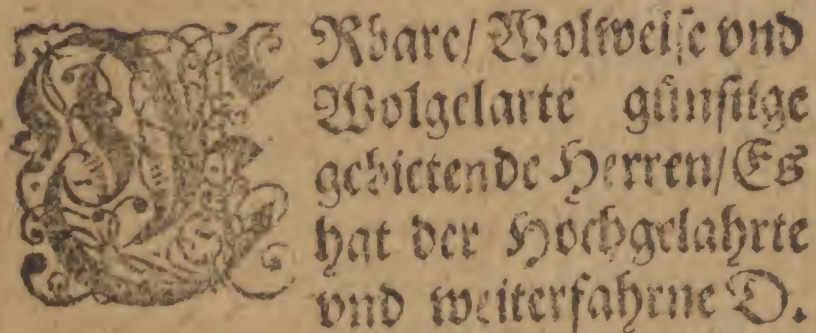 ERbare/ Wolweise vnd
Wolgelarte günstige
gebietende Herren/ Es
hat der Hochgelahrte
vnd weiterfahrne D.